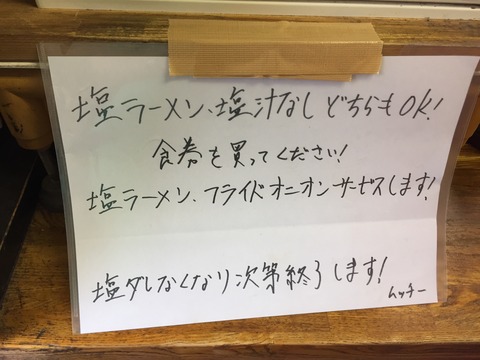 塩ラーメン、塩汁なしどちらもOK!
食券を買ってください!
塩ラーメン、フライドオニオンサービスします!
塩ダレなくなり次第終了します!
ムッチー